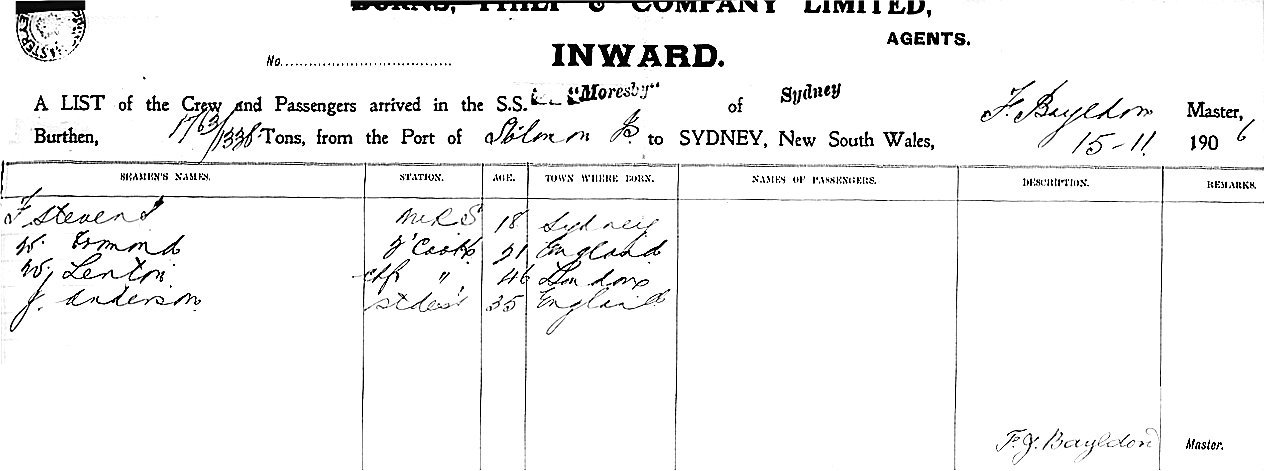 BURNS, PHILP & COMPANY LIMITED,
AGENTS.
INWARD.
No.
A LIST of the Crew and Passengers arrived in the S.S. "Moresby" of Sydney F. Bayldon Master,
Burthen, 1763/1338 Tons, from the Port of Solomon Is to SYDNEY, New South Wales, 15-11 1906
SEAMEN'S NAMES. STATION. AGE. TOWN WHERE BORN. NAMES OF PASSENGERS. DESCRIPTION. REMARKS.
F Stevens 18 Sydney
W. Ormond 2' Cook 21 England
W. Lenton chf " 46 London
J. Anderson 35 England
F. J. Bayldon Master.